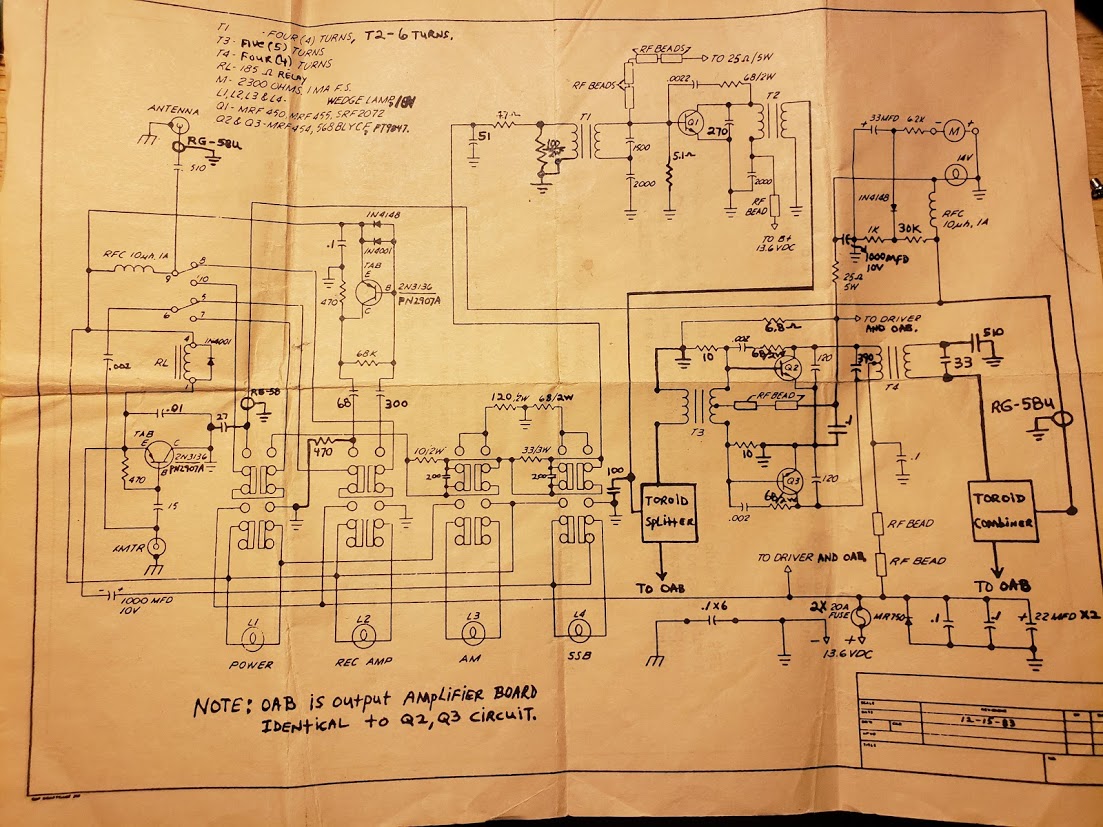 T1 - FOUR (4) TURNS, T2-6 TURNS.
T3- FIVE (5) TURNS
T4- FOUR (4) TURNS
RL- 185 Ω RELAY
M- 2300 OHMS, 1 MA F.S.
L1, L2, L3 & L4- WEDGE LAMP, 18V
Q1- MRF 450, MRF 455, SRF2072
Q2 & Q3- MRF 454, 568 BLYCF, PT9847.
ANTENNA
RG-58U
510
RF BEADS
TO 25Ω/5W
RF BEADS
.0022
68/2W
T2
T1
51
100
1500
2000
Q1
270
5.1Ω
2000
RF
BEAD
TO B+
13.6 VDC
33MFD
62K
M
+
14V
1N4148
RFC
10µh, 1A
1K
30K
1000MFD
10V
25Ω
5W
RFC 10µh, 1A
8
9
10
5
6
7
1N4148
.1
1N4001
TAB
E
B
C
2N3136
PN2907A
470
68K
68
300
.002
RL
4
1N4001
RG-58
.01
27
TAB
E
C
B
2N3136
PN2907A
470
15
XMTR
470
10/2W
200
120.2W
68/2W
33/3W
200
100
TO DRIVER
AND OAB.
6.8Ω
10
.002
68/2W
Q2
120
390
T4
33
510
RF BEAD
T3
10
Q3
120
68/2W
.002
.1
RG-58U
TOROID
SPLITTER
TO OAB
TOROID
COMBINER
TO OAB
RF BEAD
RF BEAD
TO DRIVER AND OAB
- +
1000 MFD
10V
L1
POWER
L2
REC AMP
L3
AM
L4
SSB
.1 X6
2X 20A
FUSE
- +
13.6VDC
MR750
.1
.1
+ 22 MFD X2
NOTE: OAB IS OUTPUT AMPLIFIER BOARD
IDENTICAL TO Q2, Q3 CIRCUIT.
12-15-83